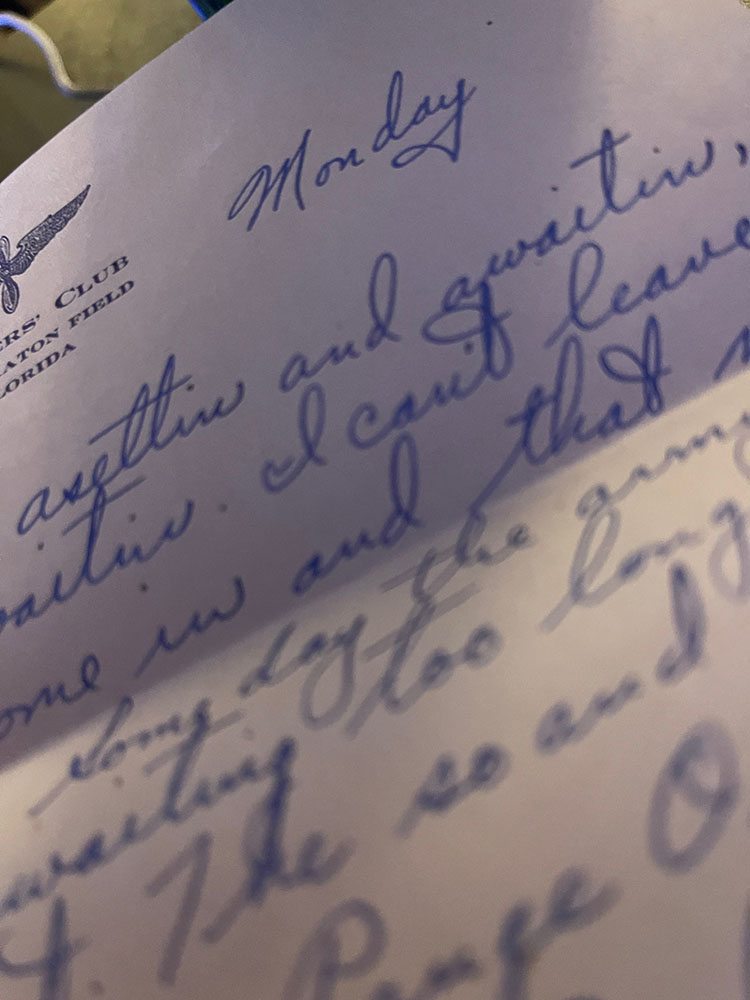 Monday
ERS' CLUB
ATON FIELD
LORIDA
asettin and awaitin,
waitin. I can't leave
ome in and that
Some day the army
waiting too long
The so and
Range O